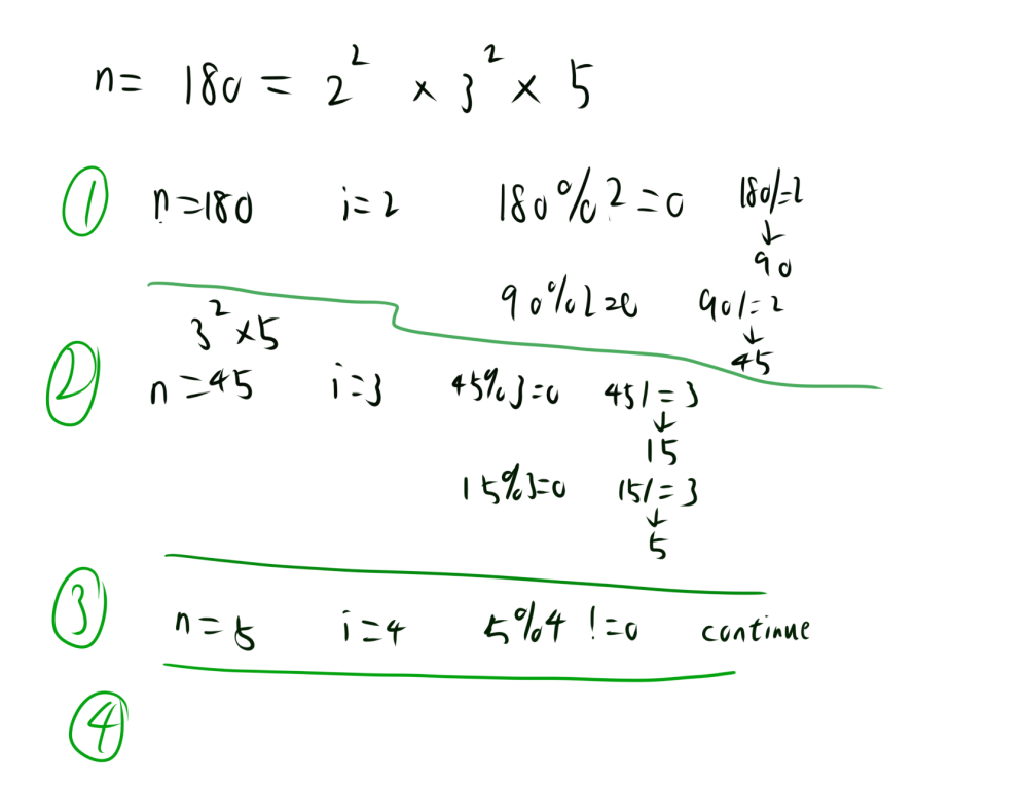 n= 180 = 2² × 3² × 5
① n=180 i=2 180%2=0 180/=2
↓
90
90%2=0 90/=2
↓
45
3²×5
② n=45 i=3 45%3=0 45/=3
↓
15
15%3=0 15/=3
↓
5
③ n=5 i=4 5%4 !=0 continue
④